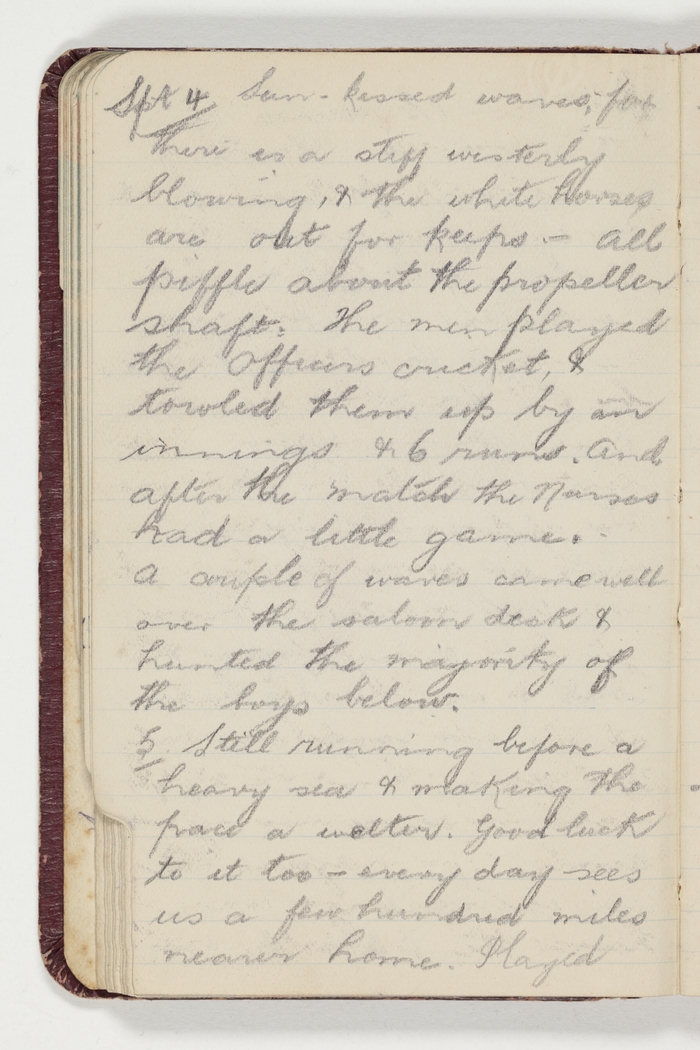 Spt 4 Sun-kissed waves, for
there is a stiff westerly
blowing, & the white horses
are out for keeps - all
piffle about the propeller
shaft. The men played
the Officers cricket, &
towled them up by an
innings & 6 runs. And
after the match the Nurses
had a little game.
A couple of waves came well
over the saloon deck &
hunted the majority of
the boys below.
5 Still running before a
heavy sea & making the
pace a welter. Good luck
to it too - every day sees
us a few hundred miles
nearer home. Played